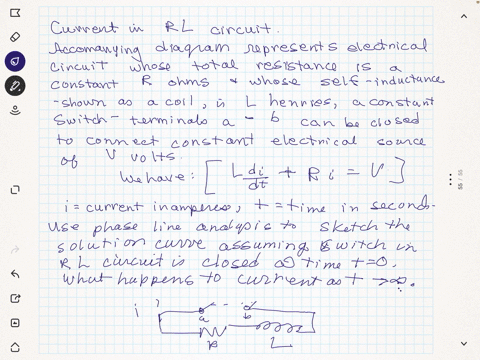 Current in RL circuit.
Accomanying diagram represents electrical
circuit whose total resistance is a
constant R ohms & whose self-inductance
-shown as a coil, is L henries, a constant
Switch - terminals a - b can be closed
to connect constant electrical source
of V volts.
We have: [L di/dt + Ri = V]
i = current in amperes, t = time in seconds
Use phase line analysis to sketch the
solution curve assuming switch in
RL circuit is closed @ time t=0.
What happens to current as t → ∞.
i
a b
R L
55 / 55